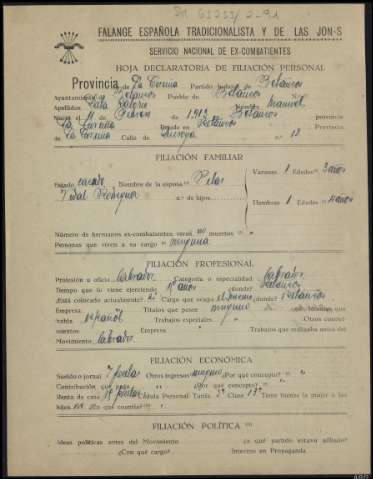 FALANGE ESPAÑOLA TRADICIONALISTA Y DE LAS JON-S
SERVICIO NACIONAL DE EX-COMBATIENTES
HOJA DECLARATORIA DE FILIACIÓN PERSONAL
Provincia de La Coruña Partido judicial de Betanzos
Ayuntamiento de Betanzos Pueblo de Betanzos
Apellidos Nombre Manuel
Nació el 11 de de 1.912 Betanzos provincia
La Coruña Reside en Betanzos Provincia
La Coruña Calle de n.º 12
FILIACIÓN FAMILIAR
Estado casado Nombre de la esposa Pilar Varones 1 Edades 3 años
Vidal Rodríguez n.º de hijos Hembras 1 Edades
Número de hermanos ex-combatientes vivos muertos "
Personas que viven a su cargo ninguna
FILIACIÓN PROFESIONAL
Profesión u oficio labrador Categoría o especialidad labrador
Tiempo que lo viene ejerciendo años ¿donde? Betanzos
¿Está colocado actualmente? si Cargo que ocupa el mismo ¿donde? Betanzos
Empresa " Títulos que posee ninguno Idiomas que
habla español Trabajos especiales " Otros conoci-
mientos Empresa " Trabajos que realizaba antes del
Movimiento labrador
FILIACIÓN ECONÓMICA
Sueldo o jornal 7 ptas Otros ingresos ninguno ¿Por qué concepto? " "
Contribución que paga " ¿Por qué concepto? "
Renta de casa ptas Cédula Personal Tarifa Clase 13ª Tiene bienes la mujer o los
hijos no ¿En que cuantía? "
FILIACIÓN POLÍTICA
Ideas políticas antes del Movimiento ¿a qué partido estuvo afiliado?
¿Con qué cargo? Intervino en Propaganda